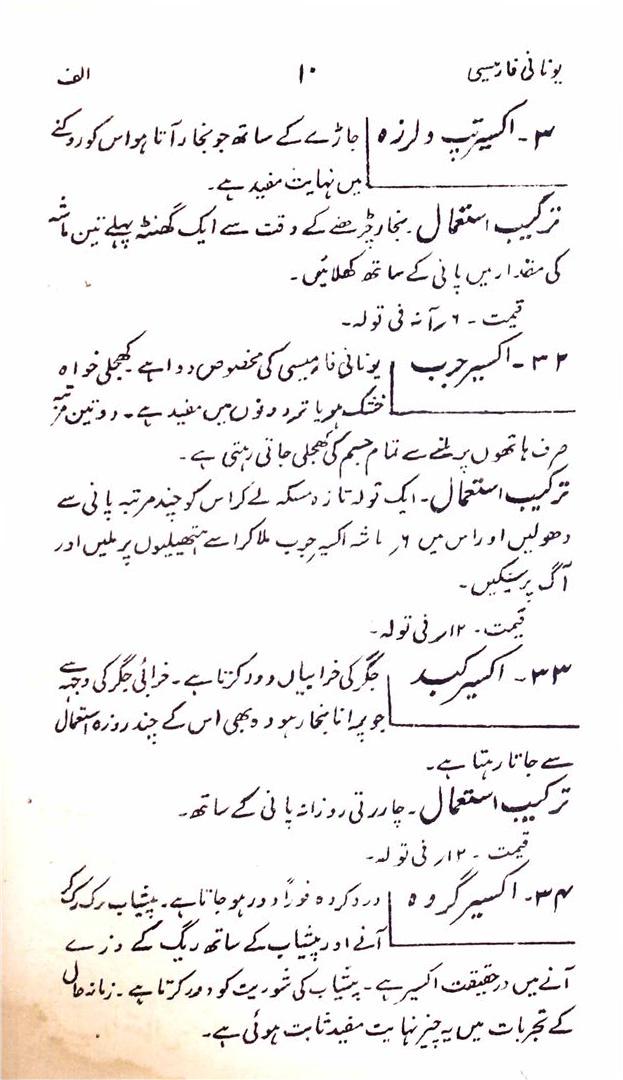 یونانی فارمیسی ۱۰ الف
۳۔ اکسیر تپ و لرزہ جاڑے کے ساتھ جو بخار آتا ہو اس کو روکنے
میں نہایت مفید ہے۔
ترکیب استعمال۔ بخار چڑھنے کے وقت سے ایک گھنٹہ پہلے تین ماشہ
کی مقدار میں پانی کے ساتھ کھلائیں۔
قیمت۔ ۶ر آنہ فی تولہ۔
۳۲۔ اکسیر جرب یونانی فارمیسی کی مخصوص دوا ہے۔ کھجلی خواہ
خشک ہو یا تر دونوں میں مفید ہے۔ دو تین مرتبہ
صرف ہاتھوں پر ملنے سے تمام جسم کی کھجلی جاتی رہتی ہے۔
ترکیب استعمال۔ ایک تولہ تازہ مسکہ لے کر اس کو چند مرتبہ پانی سے
دھولیں اور اس میں ۶ر ماشہ اکسیر جرب ملا کر اسے ہتھیلیوں پر ملیں اور
آگ پر سینکیں۔
قیمت۔ ۱۲ر فی تولہ۔
۳۳۔ اکسیر کبد جگر کی خرابیاں دور کرتا ہے۔ خرابئی جگر کی وجہ سے
جو پرانا بخار ہو وہ بھی اس کے چند روزہ استعمال
سے جاتا رہتا ہے۔
ترکیب استعمال۔ چار رتی روزانہ پانی کے ساتھ۔
قیمت۔ ۱۲ر فی تولہ۔
۳۴۔ اکسیر گردہ درد گردہ فوراً دور ہو جاتا ہے۔ پیشاب رک رک کر
آنے اور پیشاب کے ساتھ ریگ کے ذرے
آنے میں درحقیقت اکسیر ہے۔ پیشاب کی شوریت کو دور کرتا ہے۔ زمانہ حال
کے تجربات میں یہ چیز نہایت مفید ثابت ہوئی ہے۔